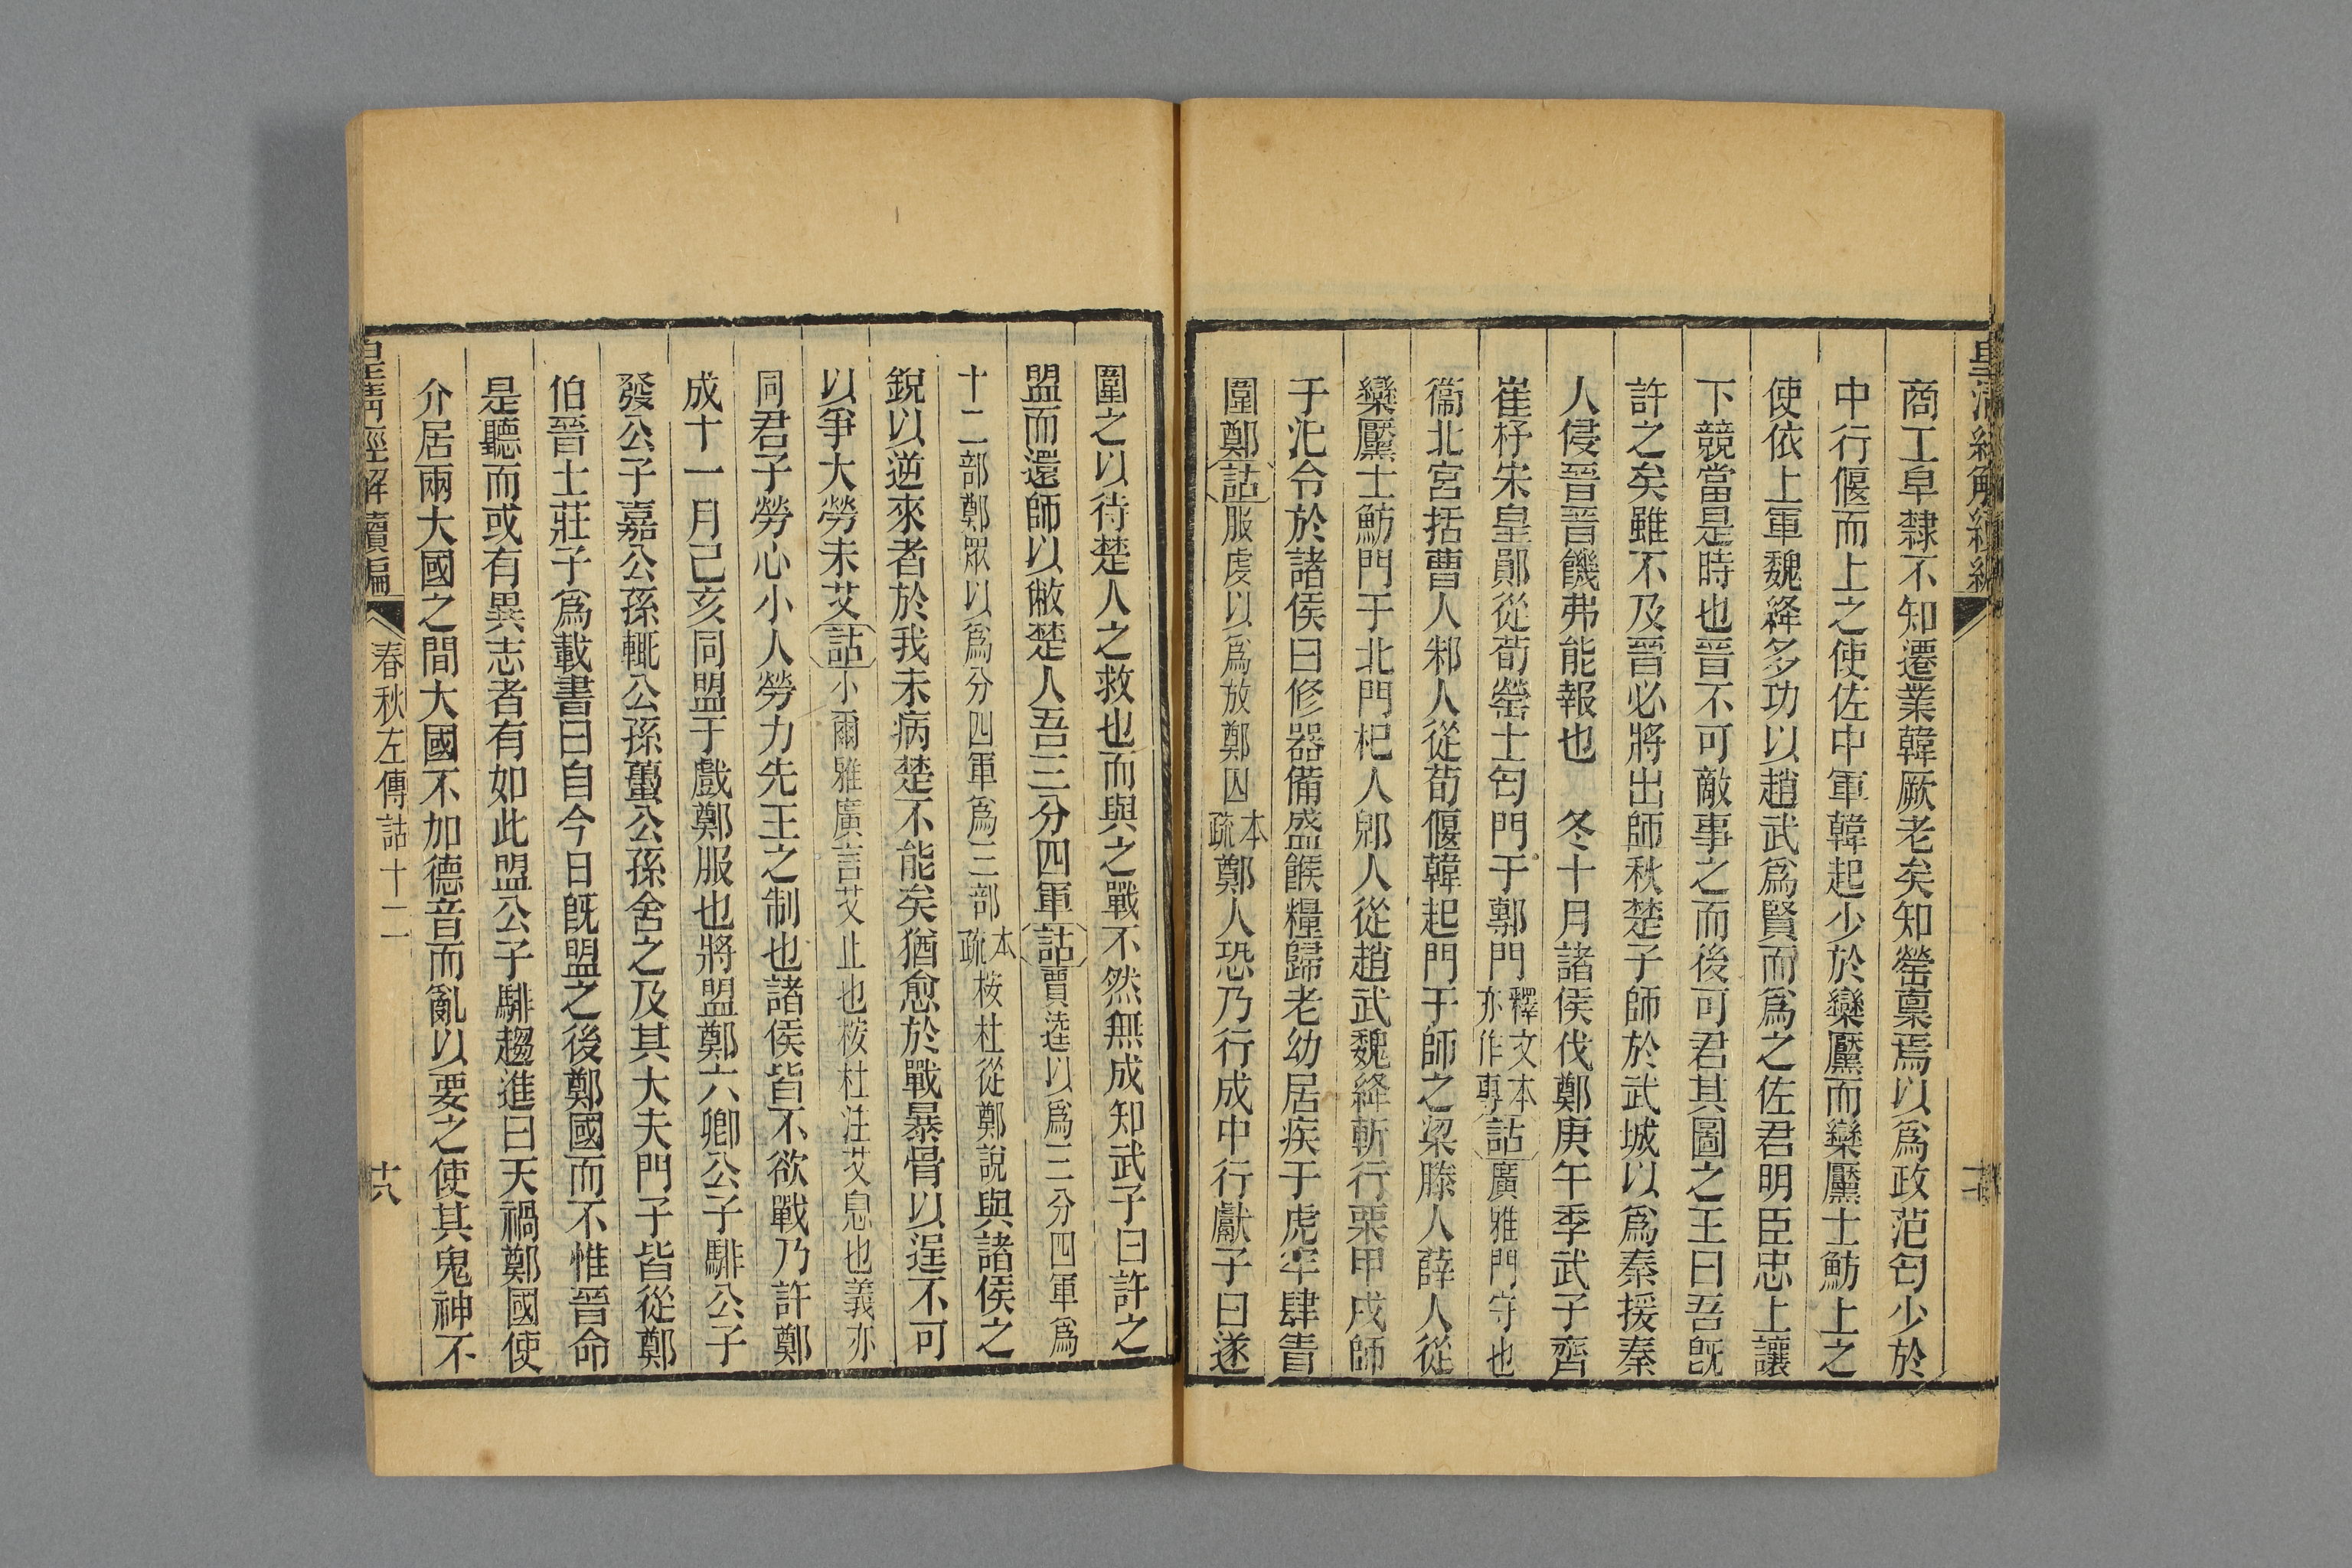 皇清經解續編
商工皁隸不知遷業韓厥老矣知罃稟焉以爲政范匄少於
中行偃而上之使佐中軍韓起少於欒黶而欒黶士魴上之
使依上軍魏絳多功以趙武爲賢而爲之佐君明臣忠上讓
下競當是時也晉不可敵事之而後可君其圖之王曰吾旣
許之矣雖不及晉必將出師秋楚子師於武城以爲秦援秦
人侵晉晉饑弗能報也　冬十月諸侯伐鄭庚午季武子齊
崔杼宋皇鄖從荀罃士匄門于鄟門釋文本亦作專詁廣雅門守也
衞北宮括曹人邾人從荀偃韓起門于師之梁滕人薛人從
欒黶士魴門于北門杞人郳人從趙武魏絳斬行栗甲戌師
于汜令於諸侯曰修器備盛餱糧歸老幼居疾于虎牢肆眚
圍鄭詁服虔以爲放鄭囚本疏鄭人恐乃行成中行獻子曰遂
圍之以待楚人之救也而與之戰不然無成知武子曰許之
盟而還師以敝楚人吾三分四軍詁賈逵以爲三分四軍爲
十二部鄭眾以爲分四軍爲三部本疏桉杜從鄭說與諸侯之
銳以逆來者於我未病楚不能矣猶愈於戰暴骨以逞不可
以爭大勞未艾詁小爾雅廣言艾止也桉杜注艾息也義亦
同君子勞心小人勞力先王之制也諸侯皆不欲戰乃許鄭
成十一月己亥同盟于戲鄭服也將盟鄭六卿公子騑公子
發公子嘉公孫輒公孫蠆公孫舍之及其大夫門子皆從鄭
伯晉士莊子爲載書曰自今日旣盟之後鄭國而不惟晉命
是聽而或有異志者有如此盟公子騑趨進曰天禍鄭國使
介居兩大國之間大國不加德音而亂以要之使其鬼神不
皇淸經解續編　春秋左傳詁十二　十八